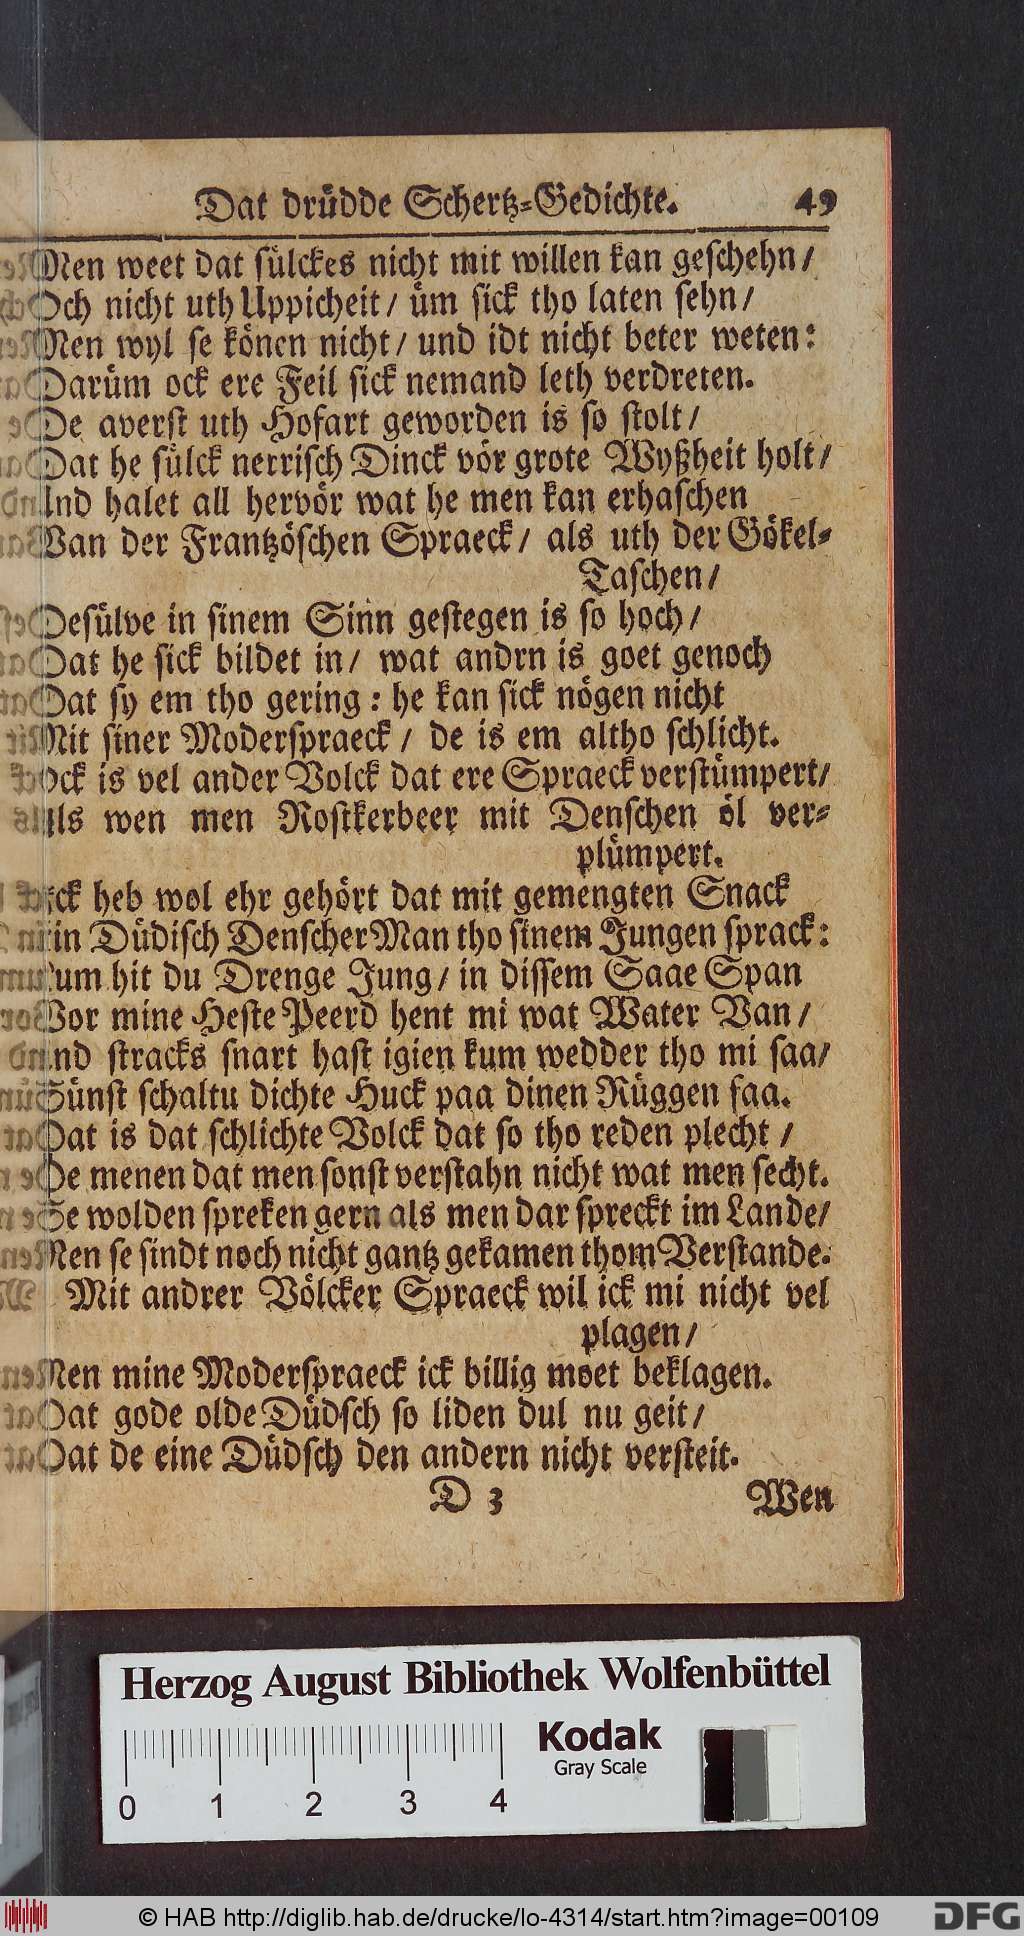 Dat drüdde Schertz-Gedichte. 49
Men weet dat sülckes nicht mit willen kan geschehn/
Och nicht uth Uppicheit/ üm sick tho laten sehn/
Men wyl se könen nicht/ und idt nicht beter weten:
Darüm ock ere Feil sick nemand leth verdreten.
De averst uth Hofart geworden is so stolt/
Dat he sülck nerrisch Dinck vör grote Wyßheit holt/
Und halet all hervör wat he men kan erhaschen
Van der Frantzöschen Spraeck/ als uth der Gökel-
Taschen/
Desülve in sinem Sinn gestegen is so hoch/
Dat he sick bildet in/ wat andrn is goet genoch
Dat sy em tho gering: he kan sick nögen nicht
Mit siner Moderspraeck/ de is em altho schlicht.
Ock is vel ander Volck dat ere Spraeck verstümpert/
Als wen men Rostkerbeer mit Denschen öl ver-
plümpert.
Ick heb wol ehr gehört dat mit gemengten Snack
Ein Düdisch Denscher Man tho sinem Jungen sprack:
Kum hit du Drenge Jung/ in dissem Saae Span
Vor mine Heste Peerd hent mi wat Water Van/
Und stracks snart hast igien kum wedder tho mi saa/
Sünst schaltu dichte Huck paa dinen Rüggen faa.
Dat is dat schlichte Volck dat so tho reden plecht/
De menen dat men sonst verstahn nicht wat men secht.
Se wolden spreken gern als men dar spreckt im Lande/
Men se sindt noch nicht gantz gekamen thom Verstande.
Mit andrer Völcker Spraeck wil ick mi nicht vel
plagen/
Men mine Moderspraeck ick billig moet beklagen.
Dat gode olde Düdsch so liden dul nu geit/
Dat de eine Düdsch den andern nicht versteit.
D 3 Wen
Herzog August Bibliothek Wolfenbüttel
Kodak
Gray Scale
0 1 2 3 4
© HAB http://diglib.hab.de/drucke/lo-4314/start.htm?image=00109
DFG